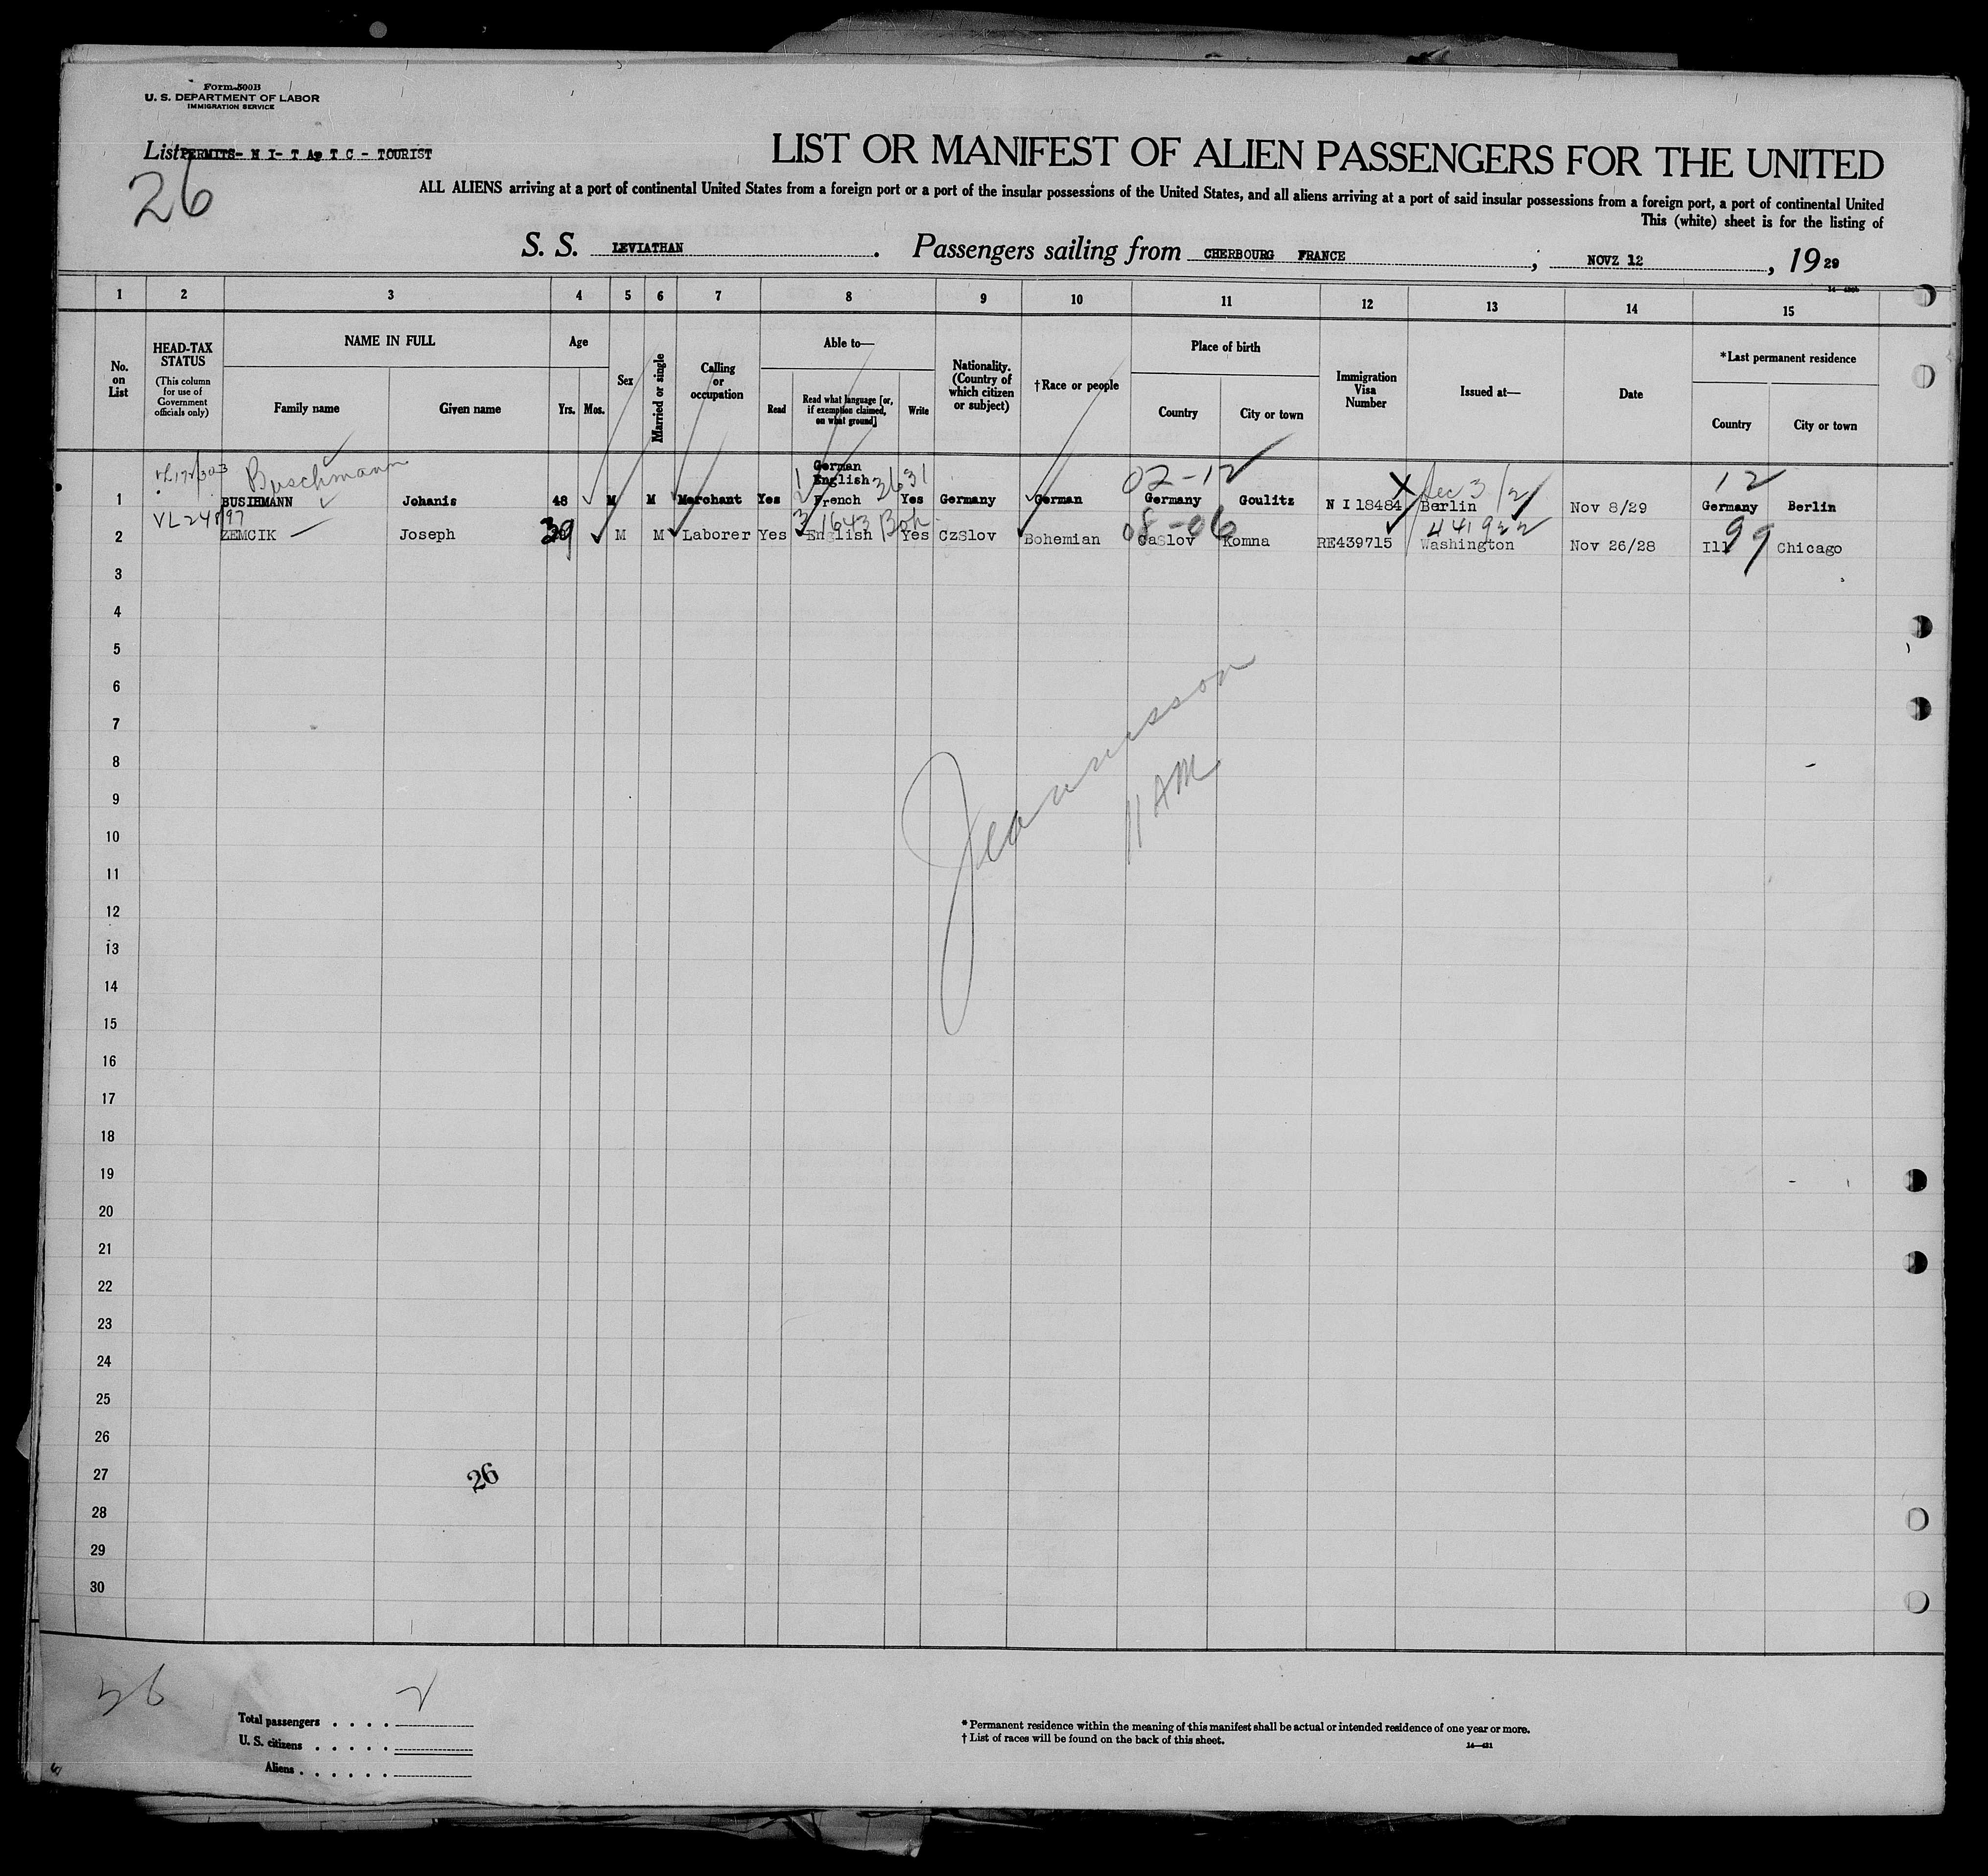 Form 500B
U. S. DEPARTMENT OF LABOR
IMMIGRATION SERVICE
List PERMITS- N I- T A T C - TOURIST
26
LIST OR MANIFEST OF ALIEN PASSENGERS FOR THE UNITED
ALL ALIENS arriving at a port of continental United States from a foreign port or a port of the insular possessions of the United States, and all aliens arriving at a port of said insular possessions from a foreign port, a port of continental United
This (white) sheet is for the listing of
S. S. LEVIATHAN. Passengers sailing from CHERBOURG FRANCE; NOVZ 12, 1929
1 2 3 4 5 6 7 8 9 10 11 12 13 14 15
No. on List
HEAD-TAX STATUS
(This column for use of Government officials only)
NAME IN FULL
Family name Given name
Age
Yrs. Mos.
Sex
Married or single
Calling or occupation
Able to—
Read
Read what language [or, if exemption claimed, on what ground]
Write
Nationality. (Country of which citizen or subject)
†Race or people
Place of birth
Country City or town
Immigration Visa Number
Issued at—
Date
*Last permanent residence
Country City or town
Buschmann
German
1 English 3631
02-12
Dec 3
12
1 BUSIHMANN Johanis 48 M M Merchant Yes French Yes Germany German Germany Goulitz N I 18484 Berlin Nov 8/29 Germany Berlin
VL 24897
3 1643 Boh
08-06
441922
99
2 ZEMCIK Joseph 39 M M Laborer Yes English Yes CzSlov Bohemian CaSlov Komna RE439715 Washington Nov 26/28 Ill Chicago
3
4
5
6
7
8
9
10
11
12
13
14
15
16
17
18
19
20
21
22
23
24
25
26
27
28
29
30
11 AM
26
26
2
Total passengers . . . .
U. S. citizens . . . . .
Aliens . . . . . .
* Permanent residence within the meaning of this manifest shall be actual or intended residence of one year or more.
† List of races will be found on the back of this sheet.
14—421